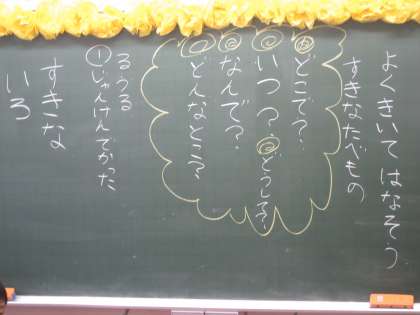 よくきいてはなそう
すきなたべもの
どこで?
いつ?
どうして?
なんで?
どんなとこ?
るうる
①じゃんけんでかった
すきな
いろ